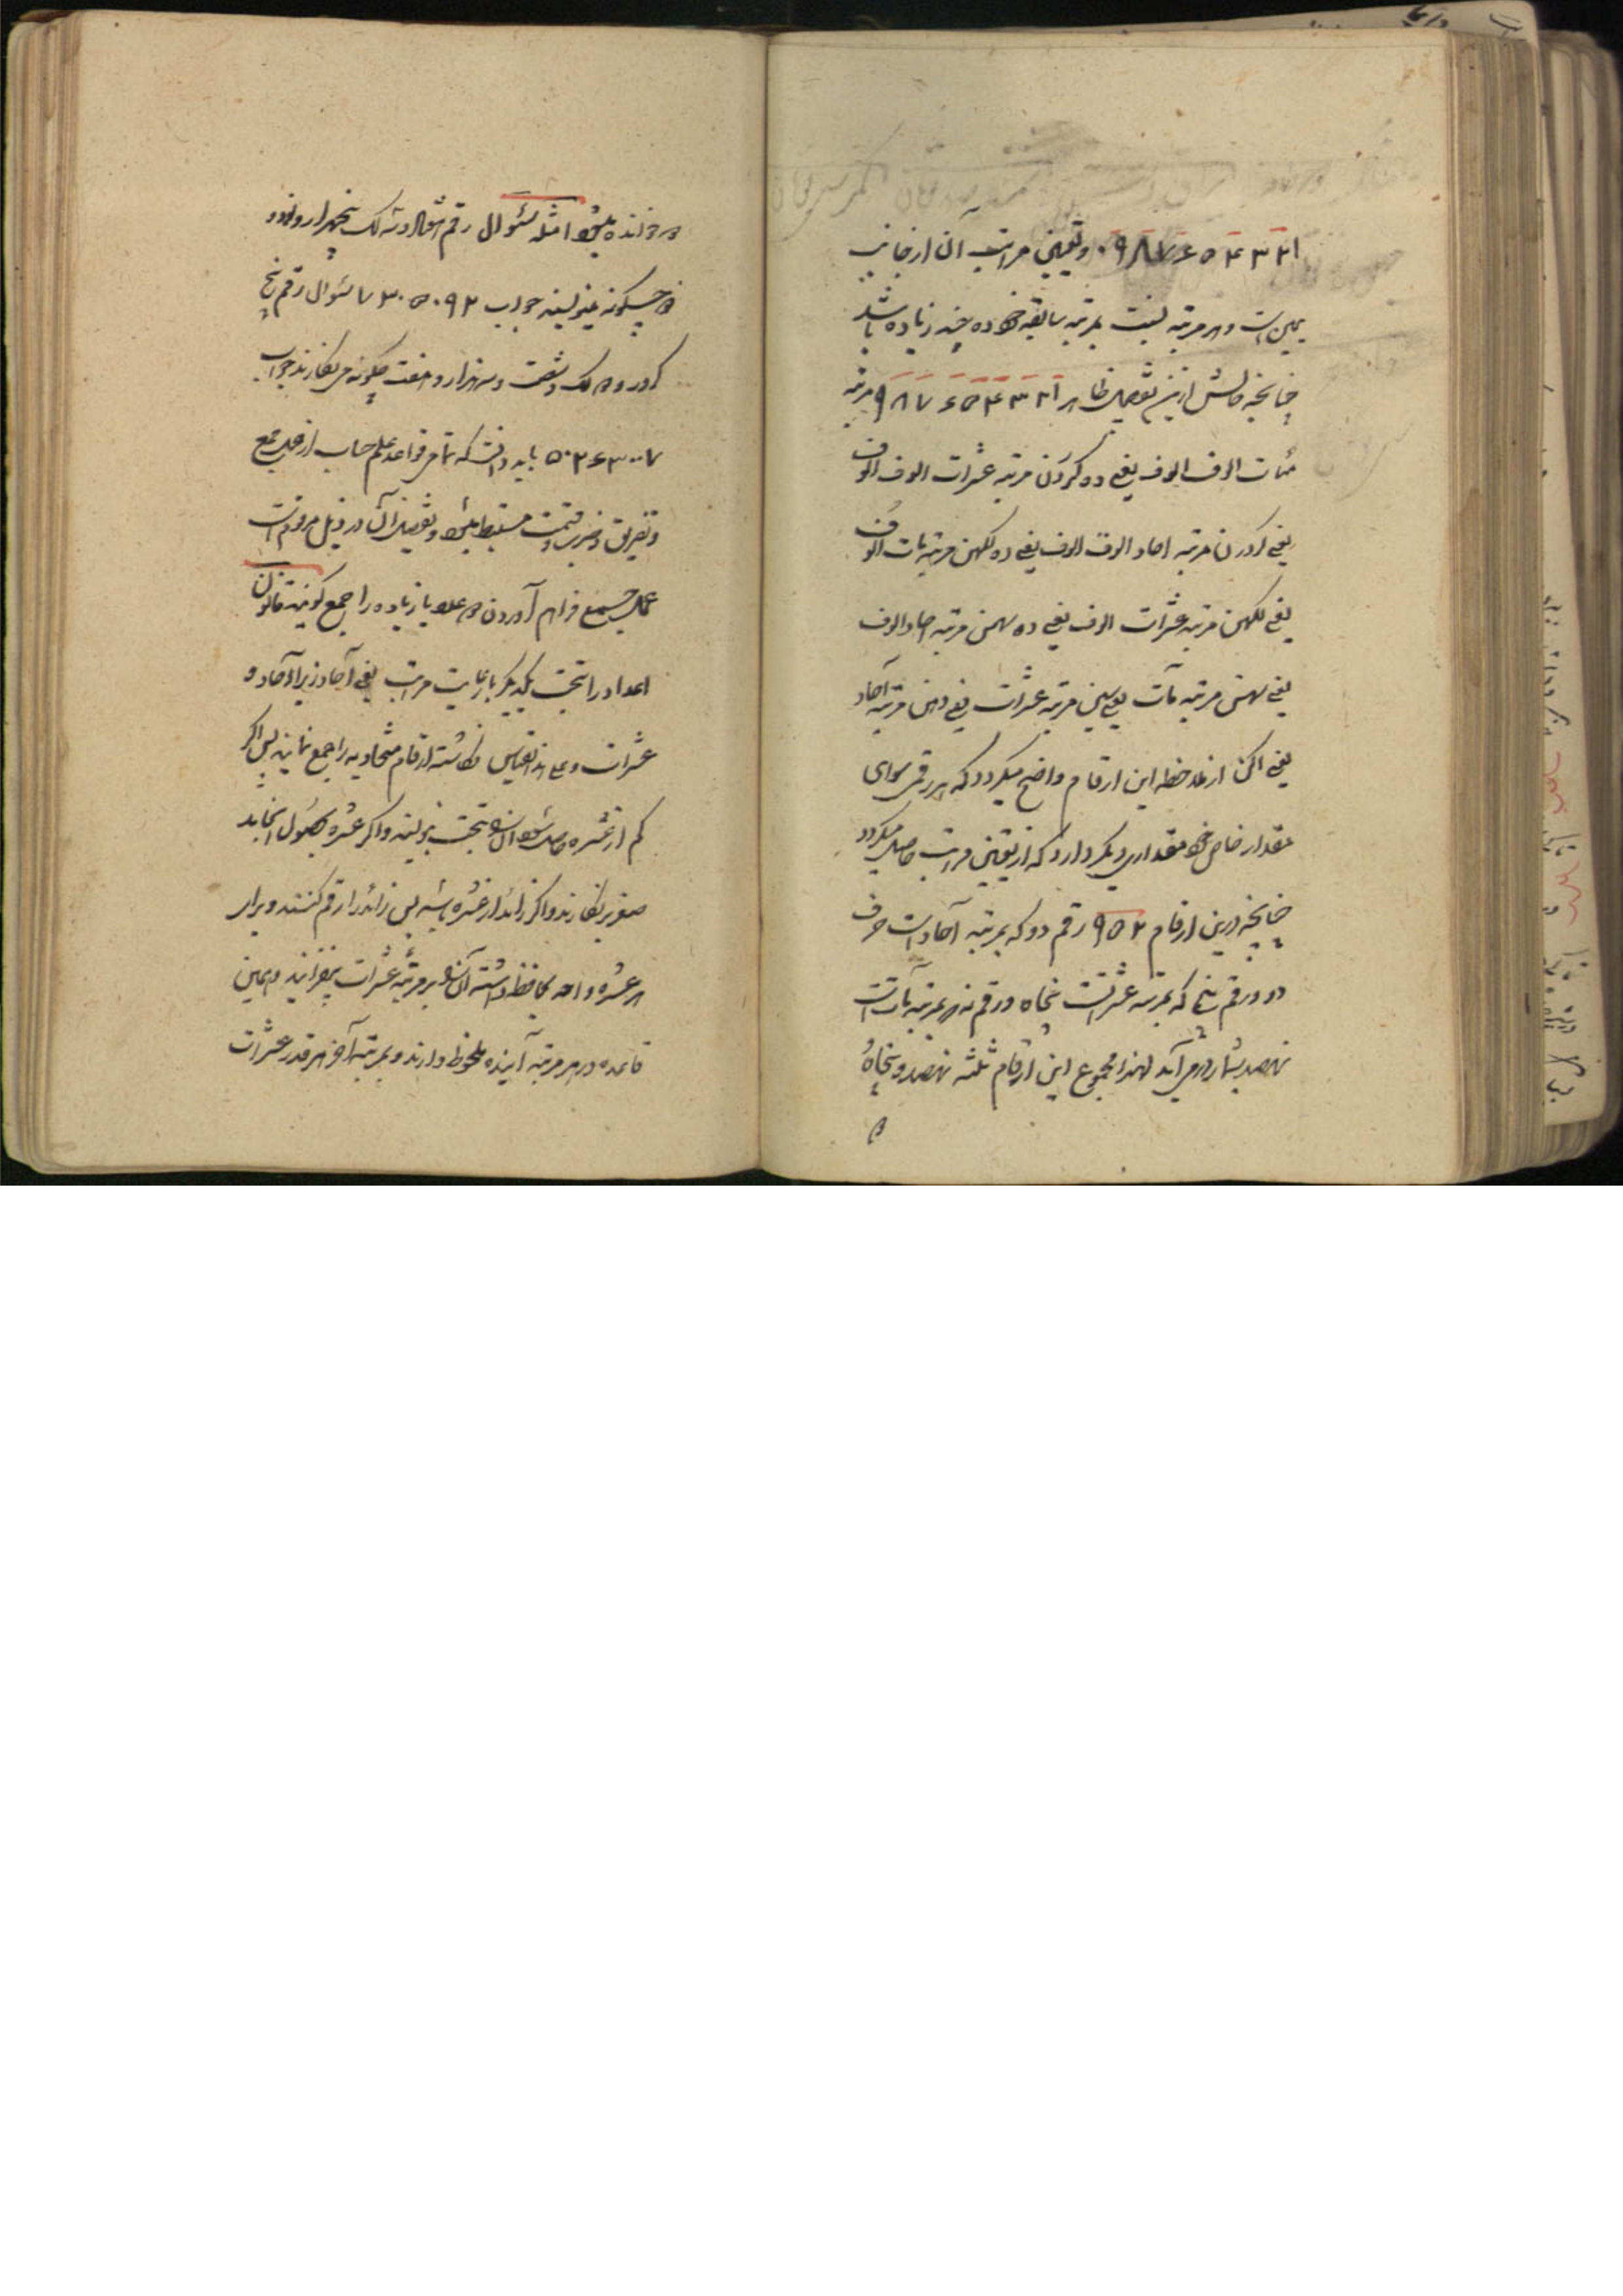 ۱ ۲ ۳ ۴ ۵ ۶ ۷ ۸ ۹ ۰ وتعیین مراتب آن از جانب
یمین است وهر مرتبه نسبت بمرتبه سابقه خود ده چند زیاده باشد
چنانچه مالش ازین تفصیل ظاهر ۱ ۲ ۳ ۴ ۵ ۶ ۷ ۸ ۹ مرتبه
مئات الوف الوف یعنے ده کرورن مرتبه عشرات الوف الوف
یعنے کرورن مرتبه احاد الوف الوف یعنے ده لکهن مرتبه مات الوف
یعنے لکهن مرتبه عشرات الوف یعنے ده سهسن مرتبه احاد الوف
یعنے سهسن مرتبه مآت یعنے سین مرتبه عشرات یعنے دهن مرتبه آحاد
یعنے اکن از ملاحظه این ارقام واضح میکردد که هر رقمی سوای
مقدار خاص خود مقداری دیکر دارد که از تعیین مراتب حاصل میکردد
چنانچه درین ارقام ۹۵۲ رقم دو که بمرتبه آحاد است صرف
دو ورقم پنج که بمرتبه عشراتست پنجاه ورقم نه که بمرتبه مآت است
نهصد بشمار در می آید لهذا مجموع این ارقام ثلثه نهصد و پنجاه
و
دو خوانده میشود امثله سئوال رقم هفتاد وسه لک پنجهزار ونود و
دو چکونه بنویسند جواب ۷۳۰۵۰۹۲ سئوال رقم پنج
کرور و دو لک وشصت وسه هزار و هفت چکونه می نکارند جواب
۵۰۲۶۳۰۰۷ باید دانست که تمامی قواعد علم حساب از عمل جمع
وتفریق وضرب وقسمت مستنبط میشود وتفصیل آن در ذیل مرقوم است
عمل جمع فراهم آوردن دو عدد یا زیاده را جمع کویند قانون
اعداد را تحت یکدیکر با رعایت مراتب یعنے آحاد زیر آحاد و
عشرات وعلی هذا القیاس نکاشته ارقام متحاذیه را جمع نمایند پس اکر
کم از عشره حاصل شود آنرا تحت بنویسند واکر عشره بحصول انجامد
صفر بنکارند واکر زائد از عشره باشد پس زائد را رقم کنند وبرای
هر عشره واحد محافظ داشته آنرا بر مرتبه عشرات بیفزایند وهمین
قاعده در هر مرتبه آینده ملحوظ دارند وبمرتبه آخر هر قدر عشرات